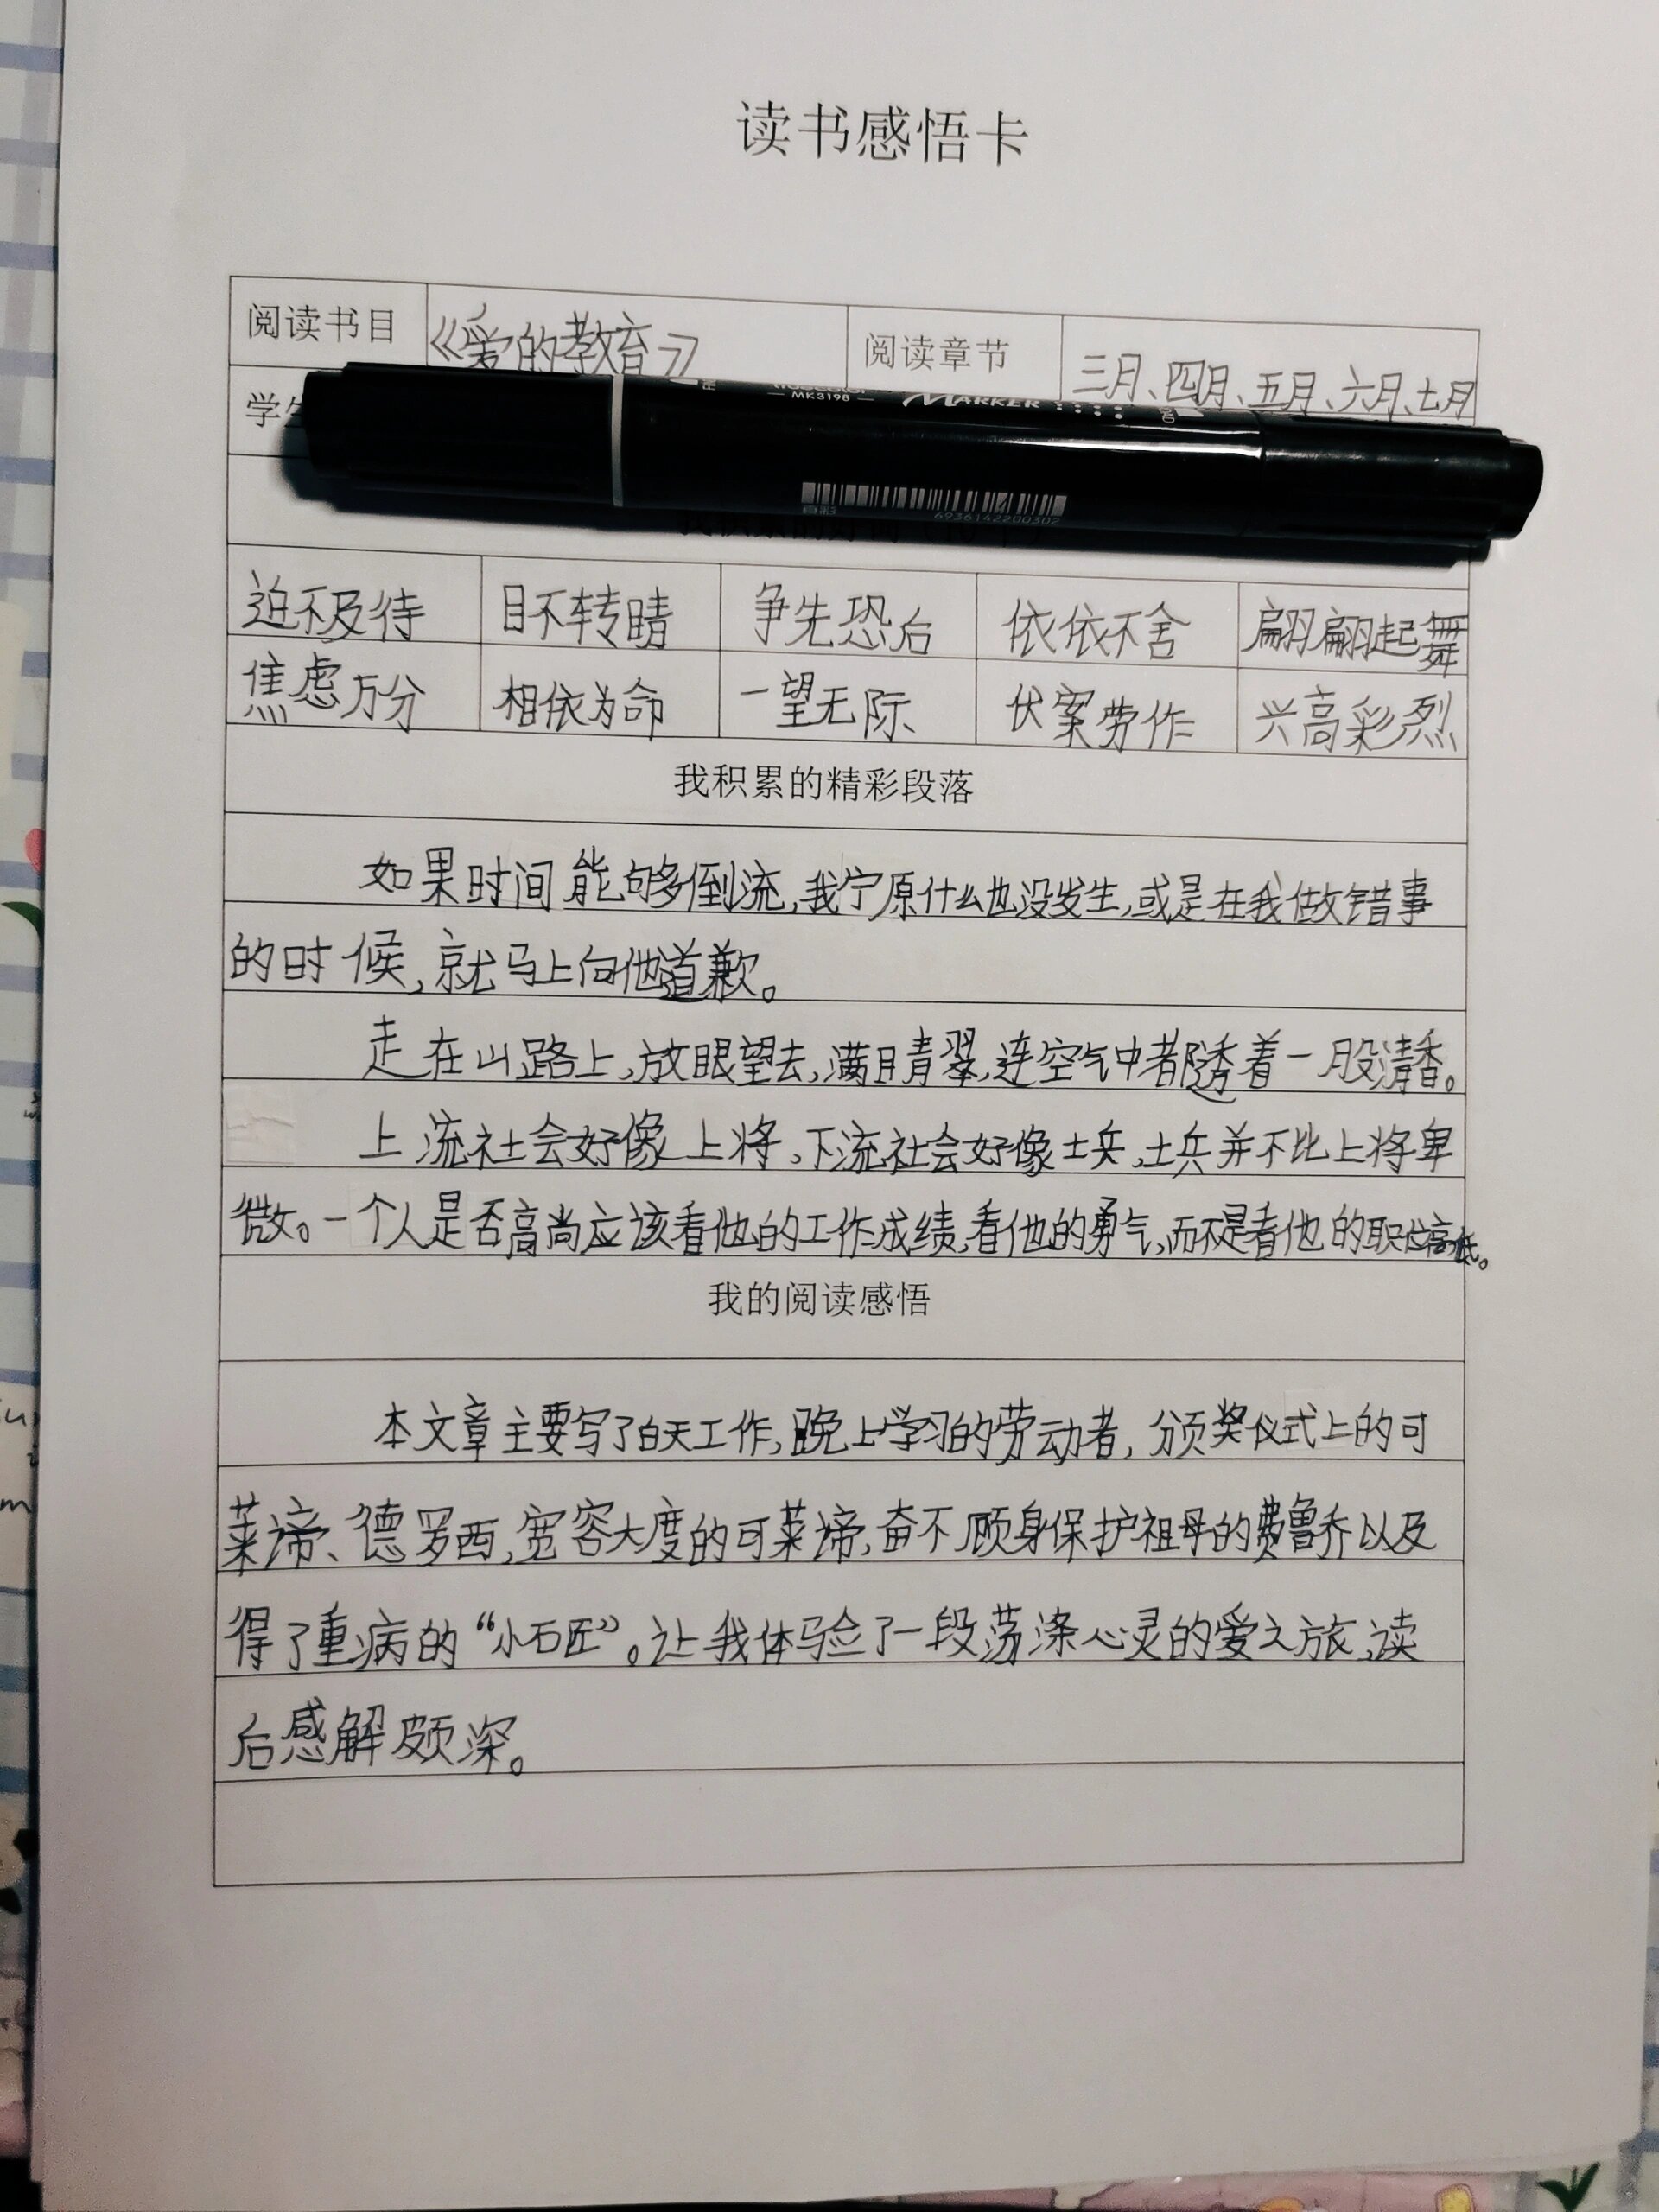 读书感悟卡
阅读书目 《爱的教育》 阅读章节 三月、四月、五月、六月、七月
MK3198 MARKER
6936142200302
迫不及待 目不转睛 争先恐后 依依不舍 翩翩起舞
焦虑万分 相依为命 一望无际 伏案劳作 兴高彩烈
我积累的精彩段落
如果时间能够倒流,我宁原什么也没发生,或是在我做错事
的时候,就马上向他道歉。
走在山路上,放眼望去,满目青翠,连空气中都透着一股清香。
上流社会好像上将,下流社会好像士兵,士兵并不比上将卑
微。一个人是否高尚应该看他的工作成绩,看他的勇气,而不是看他的职位高低。
我的阅读感悟
本文章主要写了白天工作,晚上学习的劳动者,颁奖仪式上的可
莱谛、德罗西,宽容大度的可莱谛,奋不顾身保护祖母的费鲁乔以及
得了重病的“小石匠”。让我体验了一段荡涤心灵的爱之旅,读
后感解颇深。